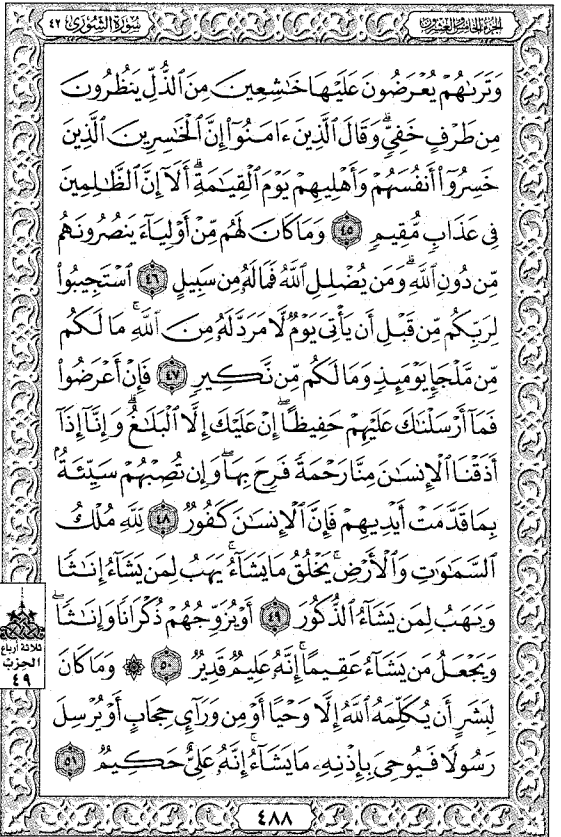 سُورَةُ الشُّورَىٰ ٤٢
الجزء الخامس والعشرون
وَتَرَىٰهُمْ يُعْرَضُونَ عَلَيْهَا خَـٰشِعِينَ مِنَ ٱلذُّلِّ يَنظُرُونَ
مِن طَرْفٍ خَفِىٍّ ۗ وَقَالَ ٱلَّذِينَ ءَامَنُوٓا۟ إِنَّ ٱلْخَـٰسِرِينَ ٱلَّذِينَ
خَسِرُوٓا۟ أَنفُسَهُمْ وَأَهْلِيهِمْ يَوْمَ ٱلْقِيَـٰمَةِ ۗ أَلَآ إِنَّ ٱلظَّـٰلِمِينَ
فِى عَذَابٍ مُّقِيمٍ ٤٥ وَمَا كَانَ لَهُم مِّنْ أَوْلِيَآءَ يَنصُرُونَهُم
مِّن دُونِ ٱللَّهِ ۗ وَمَن يُضْلِلِ ٱللَّهُ فَمَا لَهُۥ مِن سَبِيلٍ ٤٦ ٱسْتَجِيبُوا۟
لِرَبِّكُم مِّن قَبْلِ أَن يَأْتِىَ يَوْمٌ لَّا مَرَدَّ لَهُۥ مِنَ ٱللَّهِ ۚ مَا لَكُم
مِّن مَّلْجَإٍ يَوْمَئِذٍ وَمَا لَكُم مِّن نَّكِيرٍ ٤٧ فَإِنْ أَعْرَضُوا۟
فَمَآ أَرْسَلْنَـٰكَ عَلَيْهِمْ حَفِيظًا ۖ إِنْ عَلَيْكَ إِلَّا ٱلْبَلَـٰغُ ۗ وَإِنَّآ إِذَآ
أَذَقْنَا ٱلْإِنسَـٰنَ مِنَّا رَحْمَةً فَرِحَ بِهَا ۖ وَإِن تُصِبْهُمْ سَيِّئَةٌۢ
بِمَا قَدَّمَتْ أَيْدِيهِمْ فَإِنَّ ٱلْإِنسَـٰنَ كَفُورٌ ٤٨ لِّلَّهِ مُلْكُ
ٱلسَّمَـٰوَٰتِ وَٱلْأَرْضِ ۚ يَخْلُقُ مَا يَشَآءُ ۚ يَهَبُ لِمَن يَشَآءُ إِنَـٰثًا
وَيَهَبُ لِمَن يَشَآءُ ٱلذُّكُورَ ٤٩ أَوْ يُزَوِّجُهُمْ ذُكْرَانًا وَإِنَـٰثًا ۖ
وَيَجْعَلُ مَن يَشَآءُ عَقِيمًا ۚ إِنَّهُۥ عَلِيمٌ قَدِيرٌ ٥٠ ۞ وَمَا كَانَ
لِبَشَرٍ أَن يُكَلِّمَهُ ٱللَّهُ إِلَّا وَحْيًا أَوْ مِن وَرَآئِ حِجَابٍ أَوْ يُرْسِلَ
رَسُولًا فَيُوحِىَ بِإِذْنِهِۦ مَا يَشَآءُ ۚ إِنَّهُۥ عَلِىٌّ حَكِيمٌ ٥١
ثلاثة أرباع
الحزب
٤٩
٤٨٨